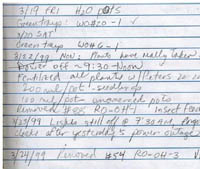 3/19 FRI H2O pots
Greentrays: WO#10-1 ✓
3/20 SAT
Green trays WO#6-1
3/22/99 Mon: Plants have really taken
Power off ~ 9:30-Noon
Fertilized all plants w/ Peters 20
200 ml/pot - seedlings
100 ml/pot - ununcovered pots
Removed #85 RO-OH-1
3/23/99 Lights still off @ 7:30 AM,
clocks after yesterday's power outage
3/24/99 Removed #54 RO-OH-3